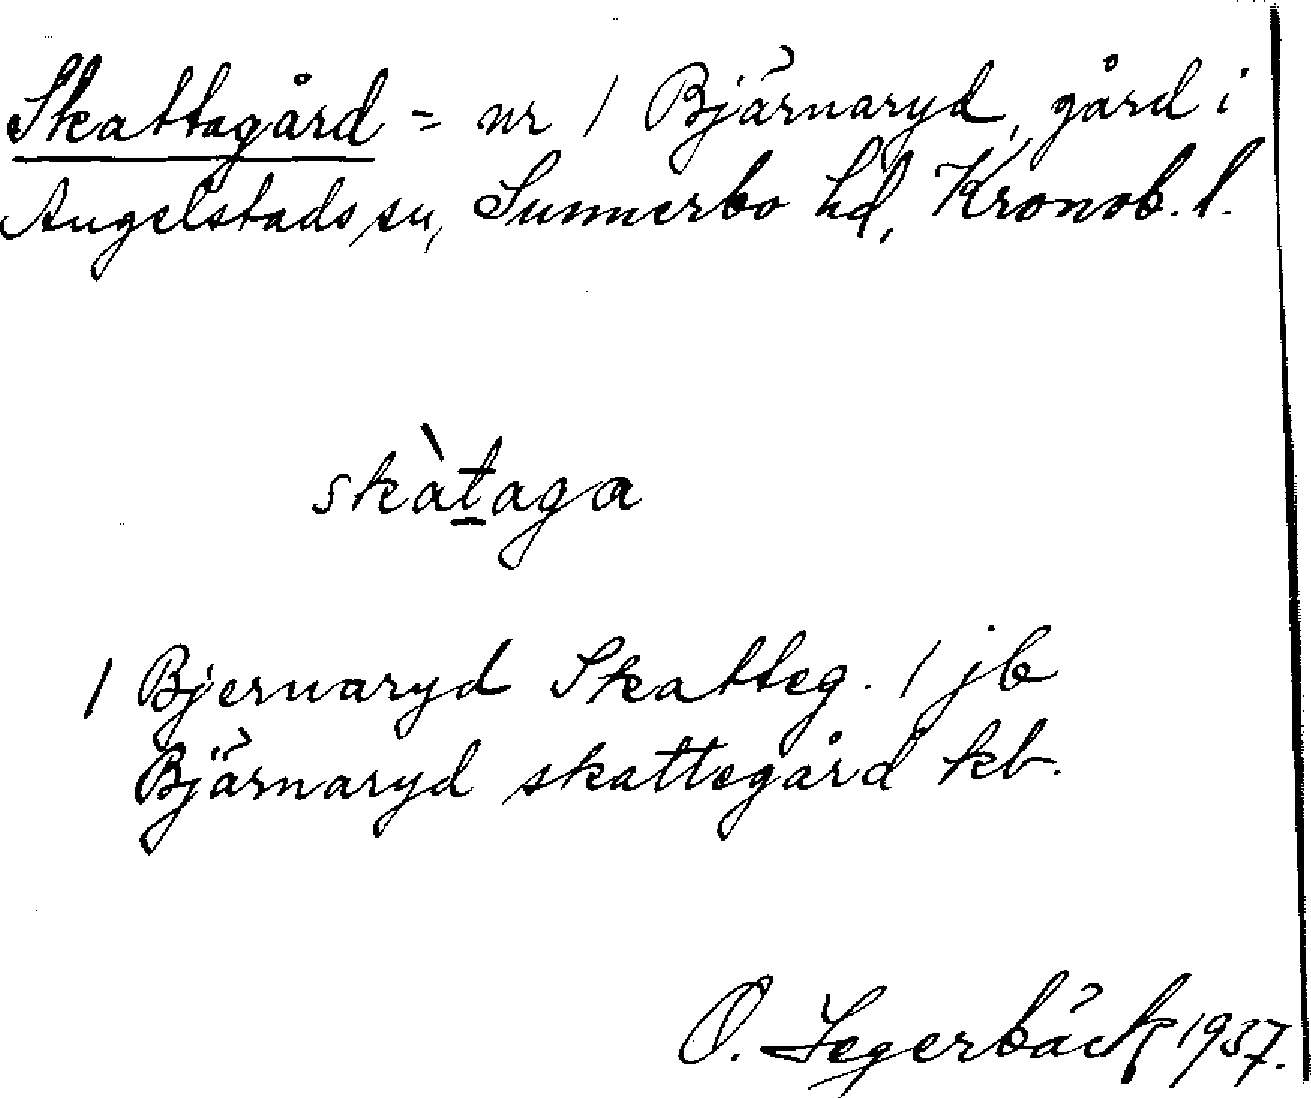 Skattagård = nr 1 Bjärnaryd, gård i
Angelstads sn, Sunnerbo hd, Kronob. l.
skàtaga
1 Bjernaryd Skatteg. 1 jb
Bjärnaryd skattegård kb.
O. Segerbäck 1937.